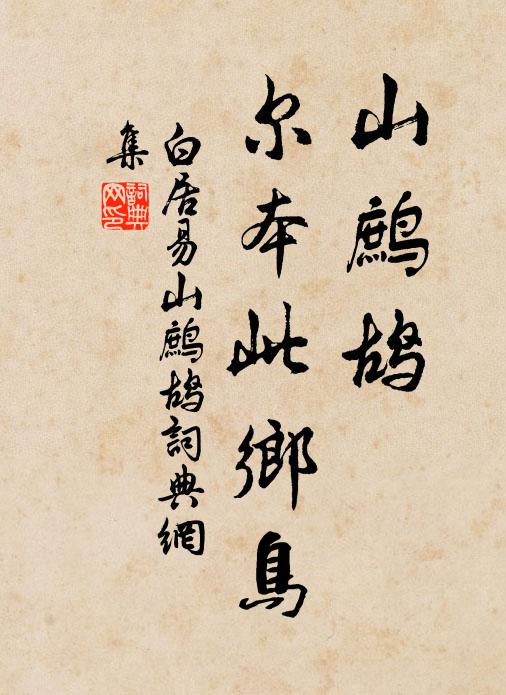 山鷓鴣
尔本此鄉鳥
白居易山鷓鴣詞典網
集
詞典
网印